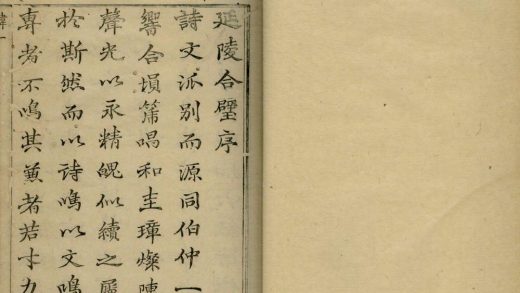 延陵合璧序
詩文派別而源同伯仲一
響合塤箎唱和圭璋燦陳
聲光以永精魄似續之
於斯然而以詩鳴以文鳴
專者不鳴其兼者若